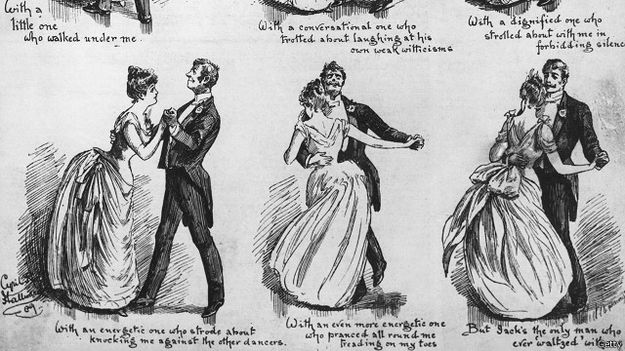 With a
little one
who walked under me
With a conversational one who
trotted about laughing at his
own weak witticisms
With a dignified one who
strolled about with me in
forbidding silence
With an energetic one who strode about
knocking me against the other dancers.
With an even more energetic one
who pranced all round me
treading on my toes
But Jack's the only man who
ever waltzed with
Getty